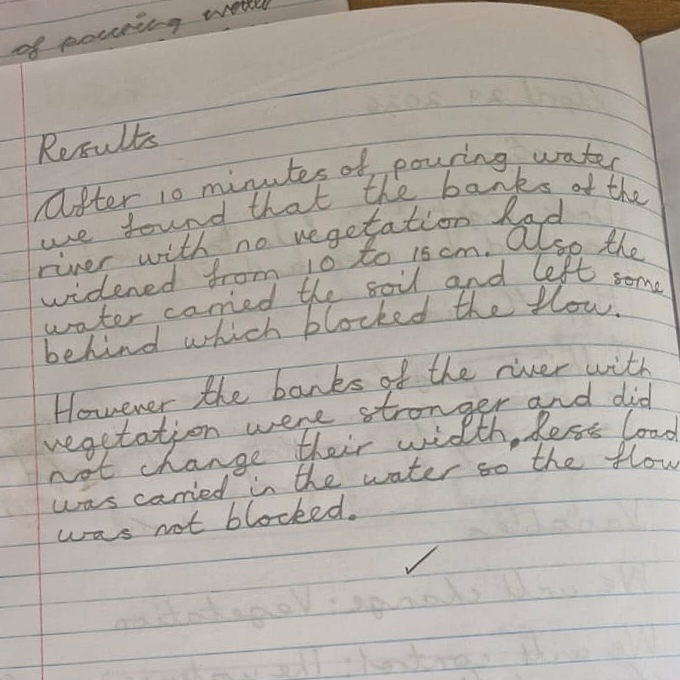 of pouring water
Results
After 10 minutes of pouring water
we found that the banks of the
river with no vegetation had
widened from 10 to 15 cm. Also the
water carried the soil and left some
behind which blocked the flow.
However the banks of the river with
vegetation were stronger and did
not change their width. Less load
was carried in the water so the flow
was not blocked.